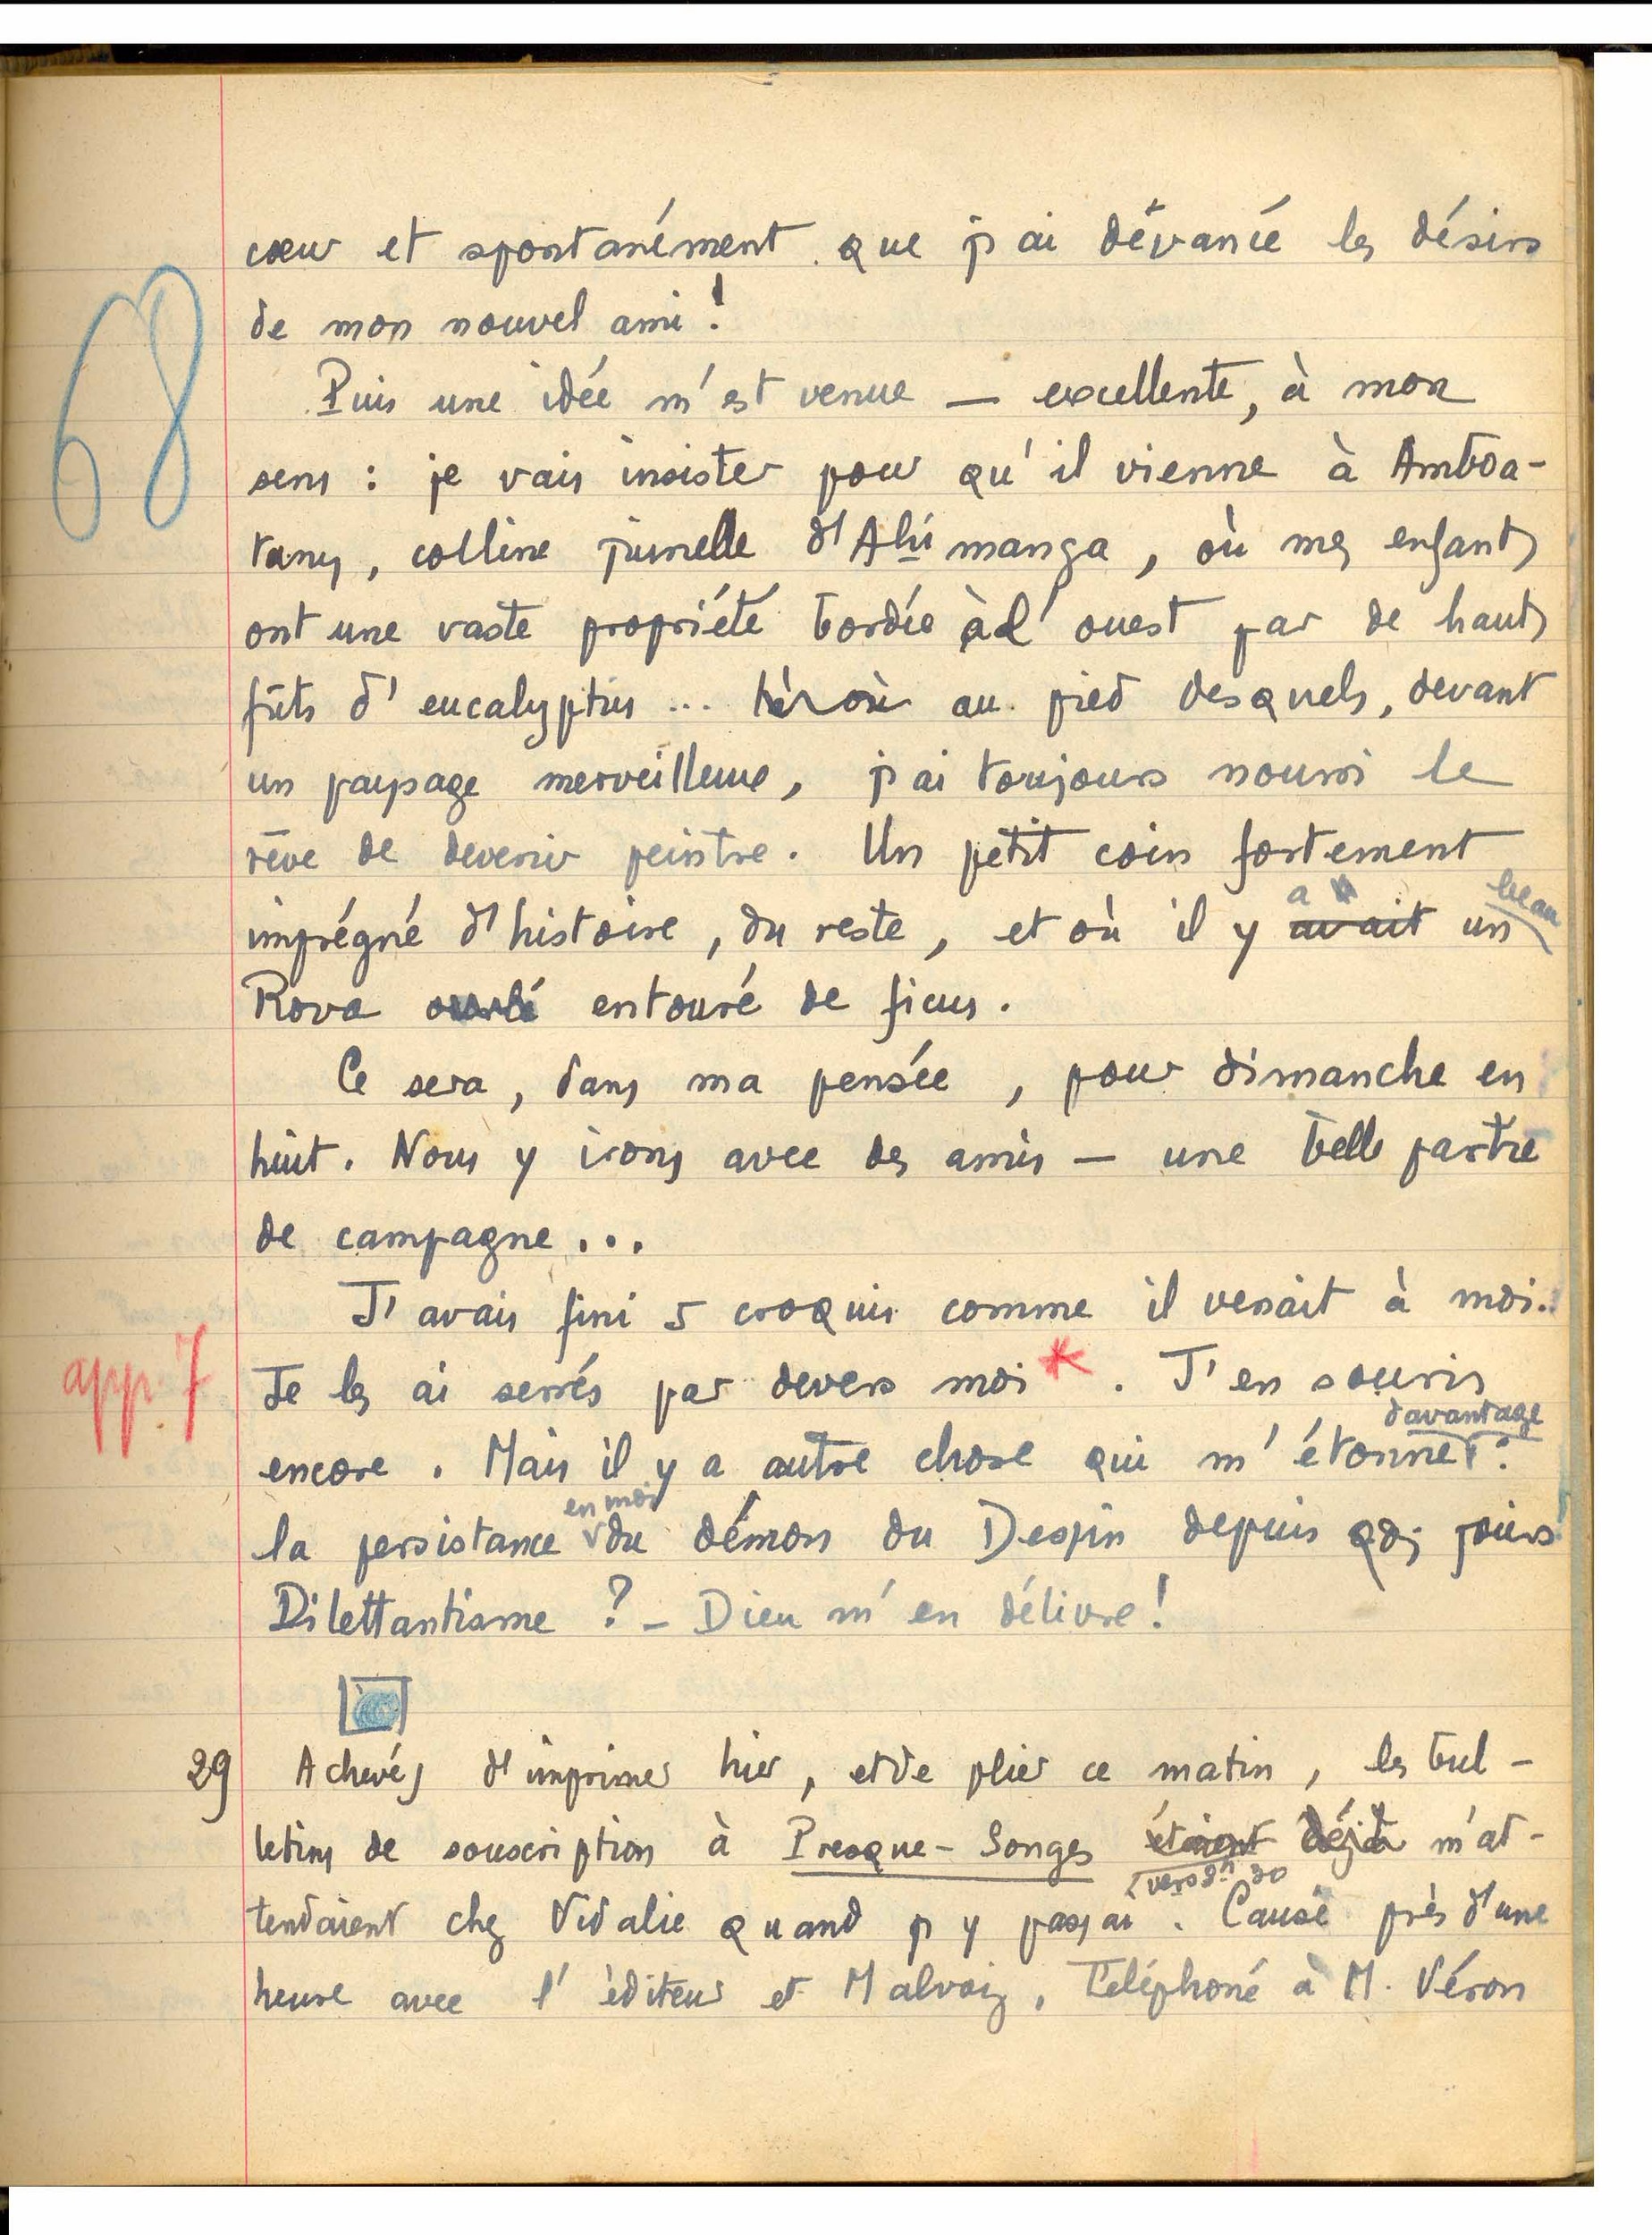 68
cœur et spontanément que j'ai dévancé les désirs
de mon nouvel ami !
Puis une idée m'est venue — excellente, à mon
sens : je vais insister pour qu'il vienne à Amboa-
tany, colline jumelle d'Ahimanga, où mes enfants
ont une vaste propriété bordée à l'ouest par de hauts
fûts d'eucalyptus ... au pied desquels, devant
un paysage merveilleux, j'ai toujours nourri le
rêve de devenir peintre. Un petit coin fortement
imprégné d'histoire, du reste, et où il y avait a un beau
Rova entouré de ficus.
Ce sera, dans ma pensée, pour dimanche en
huit. Nous y irons avec des amis — une belle partie
de campagne...
J'avais fini 5 croquis comme il venait à moi.
app. 7 Je les ai serrés par devers moi * . J'en souris
encore. Mais il y a autre chose qui m'étonne davantage :
la persistance en moi du démon du Dessin depuis qqs jours !
Dilettantisme ? - Dieu m'en délivre !
29 Achevés d'imprimer hier, et de plier ce matin, les bul-
letins de souscription à Presque-Songes étaient déjà m'at-
tendaient chez Vidalie quand j'y passai vers 8h 30. Causé près d'une
heure avec l'éditeur et Malvoiz. Téléphoné à M. Véron